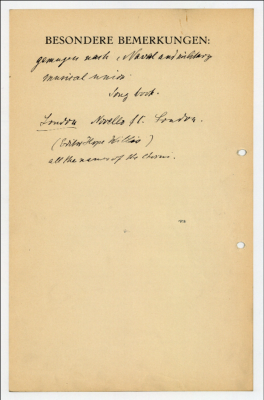 BESONDERE BEMERKUNGEN:
gesungen nach "Naval and military
musical union
Song book.
London Novello St. London.
(Editor Hope Willis)
all the names of the choruses.